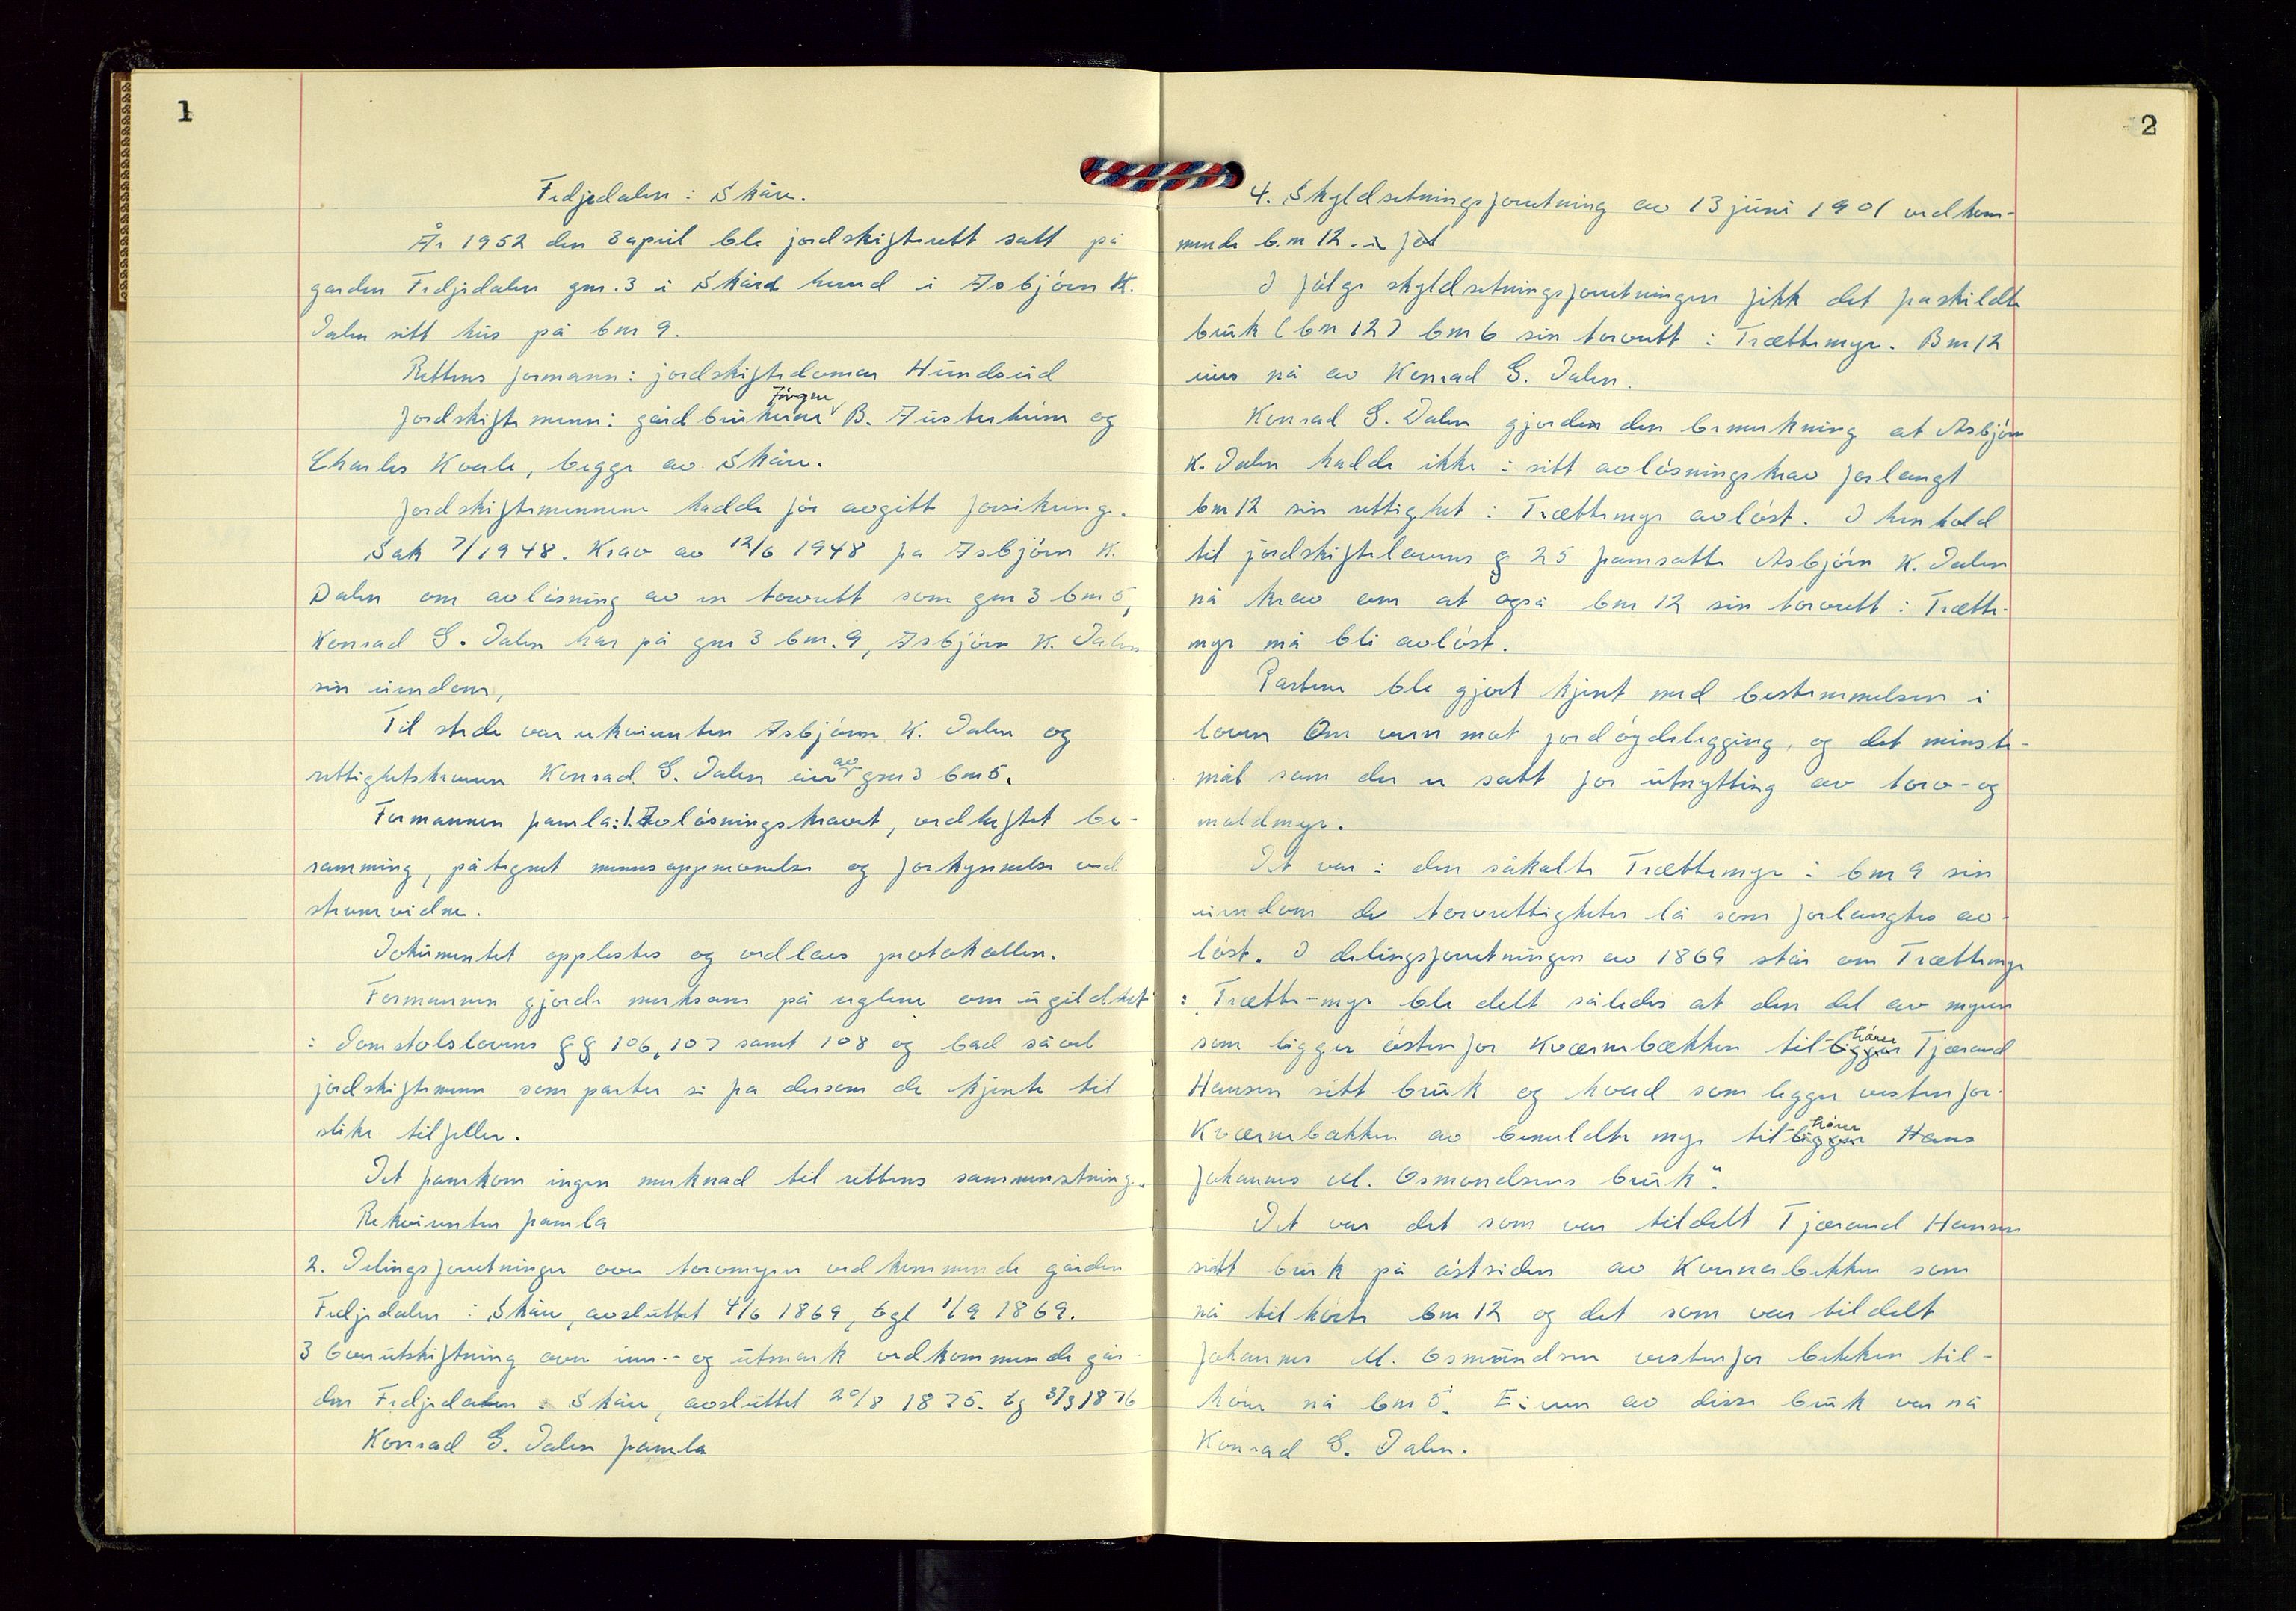 1
Fedjedalen i Skåre.
År 1952 den 3 april ble jordskifterett satt på
garden Fedjedalen gnr. 3 i Skåre herred i Asbjørn K.
Dalen sitt hus på bnr 9.
Rettens formann: jordskiftedomar Hundseid
Jørgen
Jordskiftemenn: gårdbrukerne B. Austerheim og
Charles Kvale, begge av Skåre.
Jordskiftemennene hadde før avgitt forsikring.
Sak 7/1948. Krav av 12/6 1948 fra Asbjørn K.
Dalen om avløsning av en torvrett som gnr 3 bnr 5,
Konrad G. Dalen har på gnr 3 bnr. 9, Asbjørn K. Dalen
sin eiendom,
Til stede var rekvirenten Asbjørn K. Dalen og
rettighetshaveren Konrad G. Dalen eier av gnr 3 bnr 5.
Formannen framla: 1. Avløsningskravet, vedheftet be-
ramming, påtegnet mennsoppnevnelse og forkynnelse ved
stevnevidne.
Dokumentet opplestes og vedlaes protokollen.
Formannen gjorde merksam på reglene om ugildhet
i Domstolslovens §§ 106, 107 samt 108 og bad såvel
jordskiftemenn som parter si fra dersom de kjente til
slike tilfeller.
Det framkom ingen merknad til rettens sammensetning.
Rekvirenten framla
2. Delingsforretninger over torvmyrer vedkommende gården
Fedjedalen i Skåre, avsluttet 4/6 1869, tgl 1/9 1869.
3 Overutskiftning over inn- og utmark vedkommende går-
den Fedjedalen i Skåre, avsluttet 20/8 1875. tg 3/3 1876
Konrad G. Dalen framla
2
4. Skyldsetningsforretning av 13 juni 1901 vedkom-
mende b.nr 12. i føl
I følge skyldsetningsforretningen fikk det fraskildte
bruk (bnr 12) bnr 6 sin torvrett i Trættemyr. Bnr 12
eies nå av Konrad G. Dalen.
Konrad G. Dalen gjorden den bemerkning at Asbjørn
K. Dalen hadde ikke i sitt avløsningskrav forlangt
bnr 12 sin rettighet i Trættemyr avløst. I henhold
til jordskiftelovens § 25 framsatte Asbjørn K. Dalen
nå krav om at også bnr 12 sin torvrett i Trætte-
myr må bli avløst.
Partene ble gjort kjent med bestemmelsen i
loven Om vern mot jordøydelegging, og det minste-
mål som der er satt for utnytting av torv- og
moldmyr.
Det var i den såkalte Trættemyr i bnr 9 sin
eiendom de torvrettigheter lå som forlangtes av-
løst. I delingsforretningen av 1869 står om Trættemyr
: „Trætte-myr ble delt således at den del av myren
som ligger østenfor Kværnebækken til-ligger hører Tjærand
Hansen sitt bruk og hvad som ligger vestenfor
Kværnebækken av bemeldte myr til-ligger hører Hans
Johannes M. Osmondsens bruk".
Det var det som var tildelt Tjærand Hansen
sitt bruk på østsiden av Kvernebekken som
nå tilhørte bnr 12 og det som var tildelt
Johannes M. Osmundsen vestenfor bekken til-
hører nå bnr 5. Eieren av disse bruk var nå
Konrad G. Dalen.